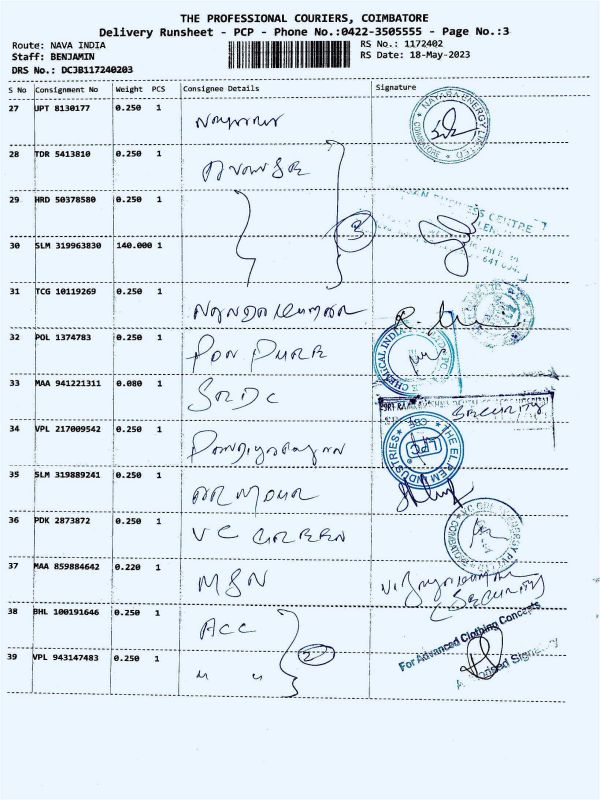 THE PROFESSIONAL COURIERS, COIMBATORE
Delivery Runsheet - PCP - Phone No.:0422-3505555 - Page No.:3
Route: NAVA INDIA
RS No.: 1172402
Staff: BENJAMIN
RS Date: 18-May-2023
DRS No.: DCJB117240203
S No Consignment No Weight PCS Consignee Details Signature
27 UPT 8130177 0.250 1
NAYARA ENERGY LIMITED COIMBATORE
28 TDR 5413810 0.250 1
29 HRD 50378580 0.250 1
CENTRE
3
30 SLM 319963830 140.000 1
641
31 TCG 10119269 0.250 1 NANDAKUMAR
32 POL 1374783 0.250 1 PON PURE
CHEMICAL INDIA
33 MAA 941221311 0.080 1 SRDC
SECURITY
34 VPL 217009542 0.250 1
THE ELREM INDUSTRIES CBE
35 SLM 319889241 0.250 1 ARMOUR
36 PDK 2873872 0.250 1 VC GREEN
37 MAA 859884642 0.220 1 MSN
SECURITY
38 BHL 100191646 0.250 1 ACC
For Advanced Clothing Concepts
2
39 VPL 943147483 0.250 1 " "
Authorised Signatory